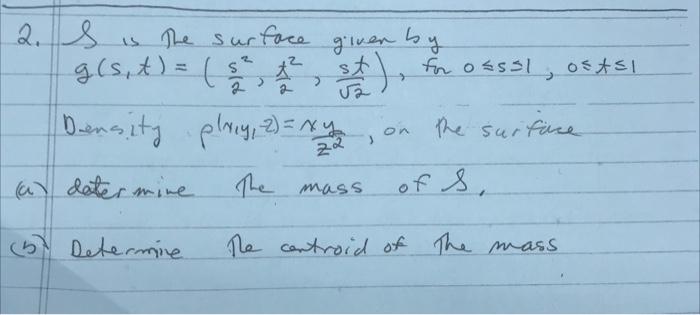 2. S is the surface given by
g(s,t) = (s²/2, t²/2, st/√2), for 0≤s≤1, 0≤t≤1
Density ρ(x,y,z) = xy/z², on the surface
(a) determine the mass of S.
(b) Determine the centroid of the mass